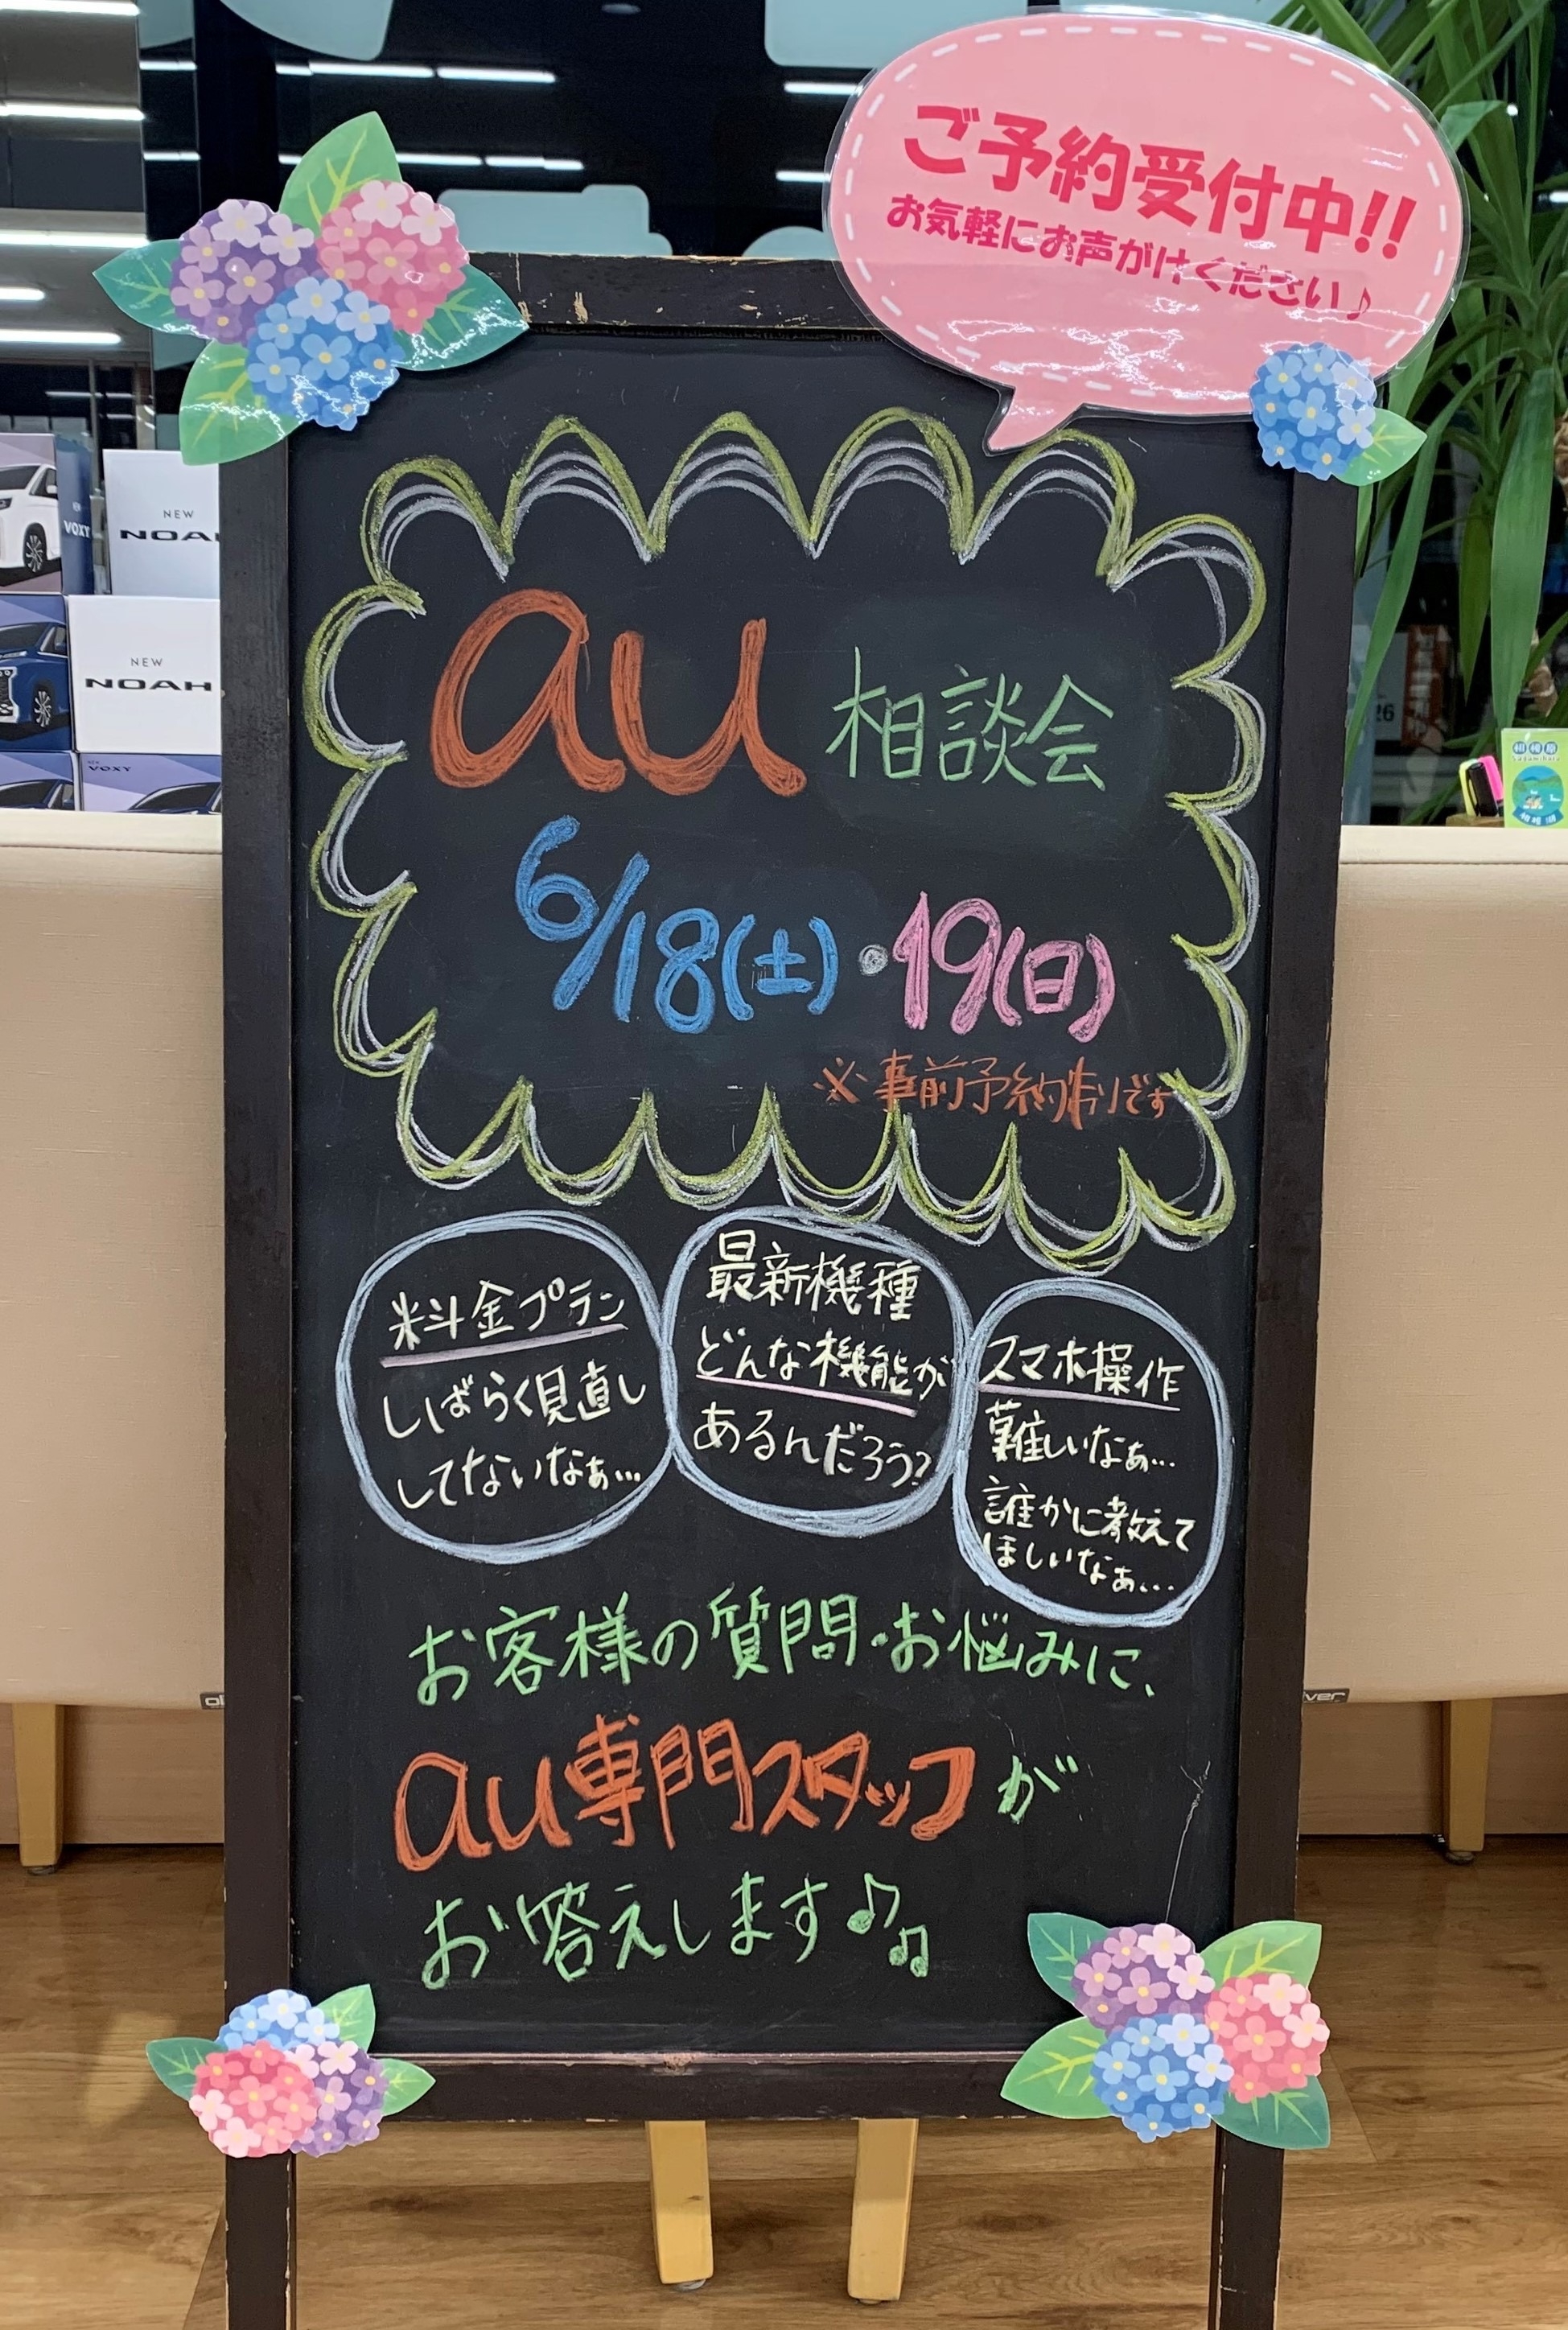 ご予約受付中!!
お気軽にお声がけください♪
au 相談会
6/18(土)・19(日)
※事前予約制です
料金プラン
しばらく見直し
してないなぁ…
最新機種
どんな機能が
あるんだろう?
スマホ操作
難しいなぁ…
誰かに教えて
ほしいなぁ…
お客様の質問・お悩みに、
au専門スタッフが
お答えします♪♫
VOXY
NEW
NOAH
NEW
NOAH
VOXY
26
相模原
Sagamihara